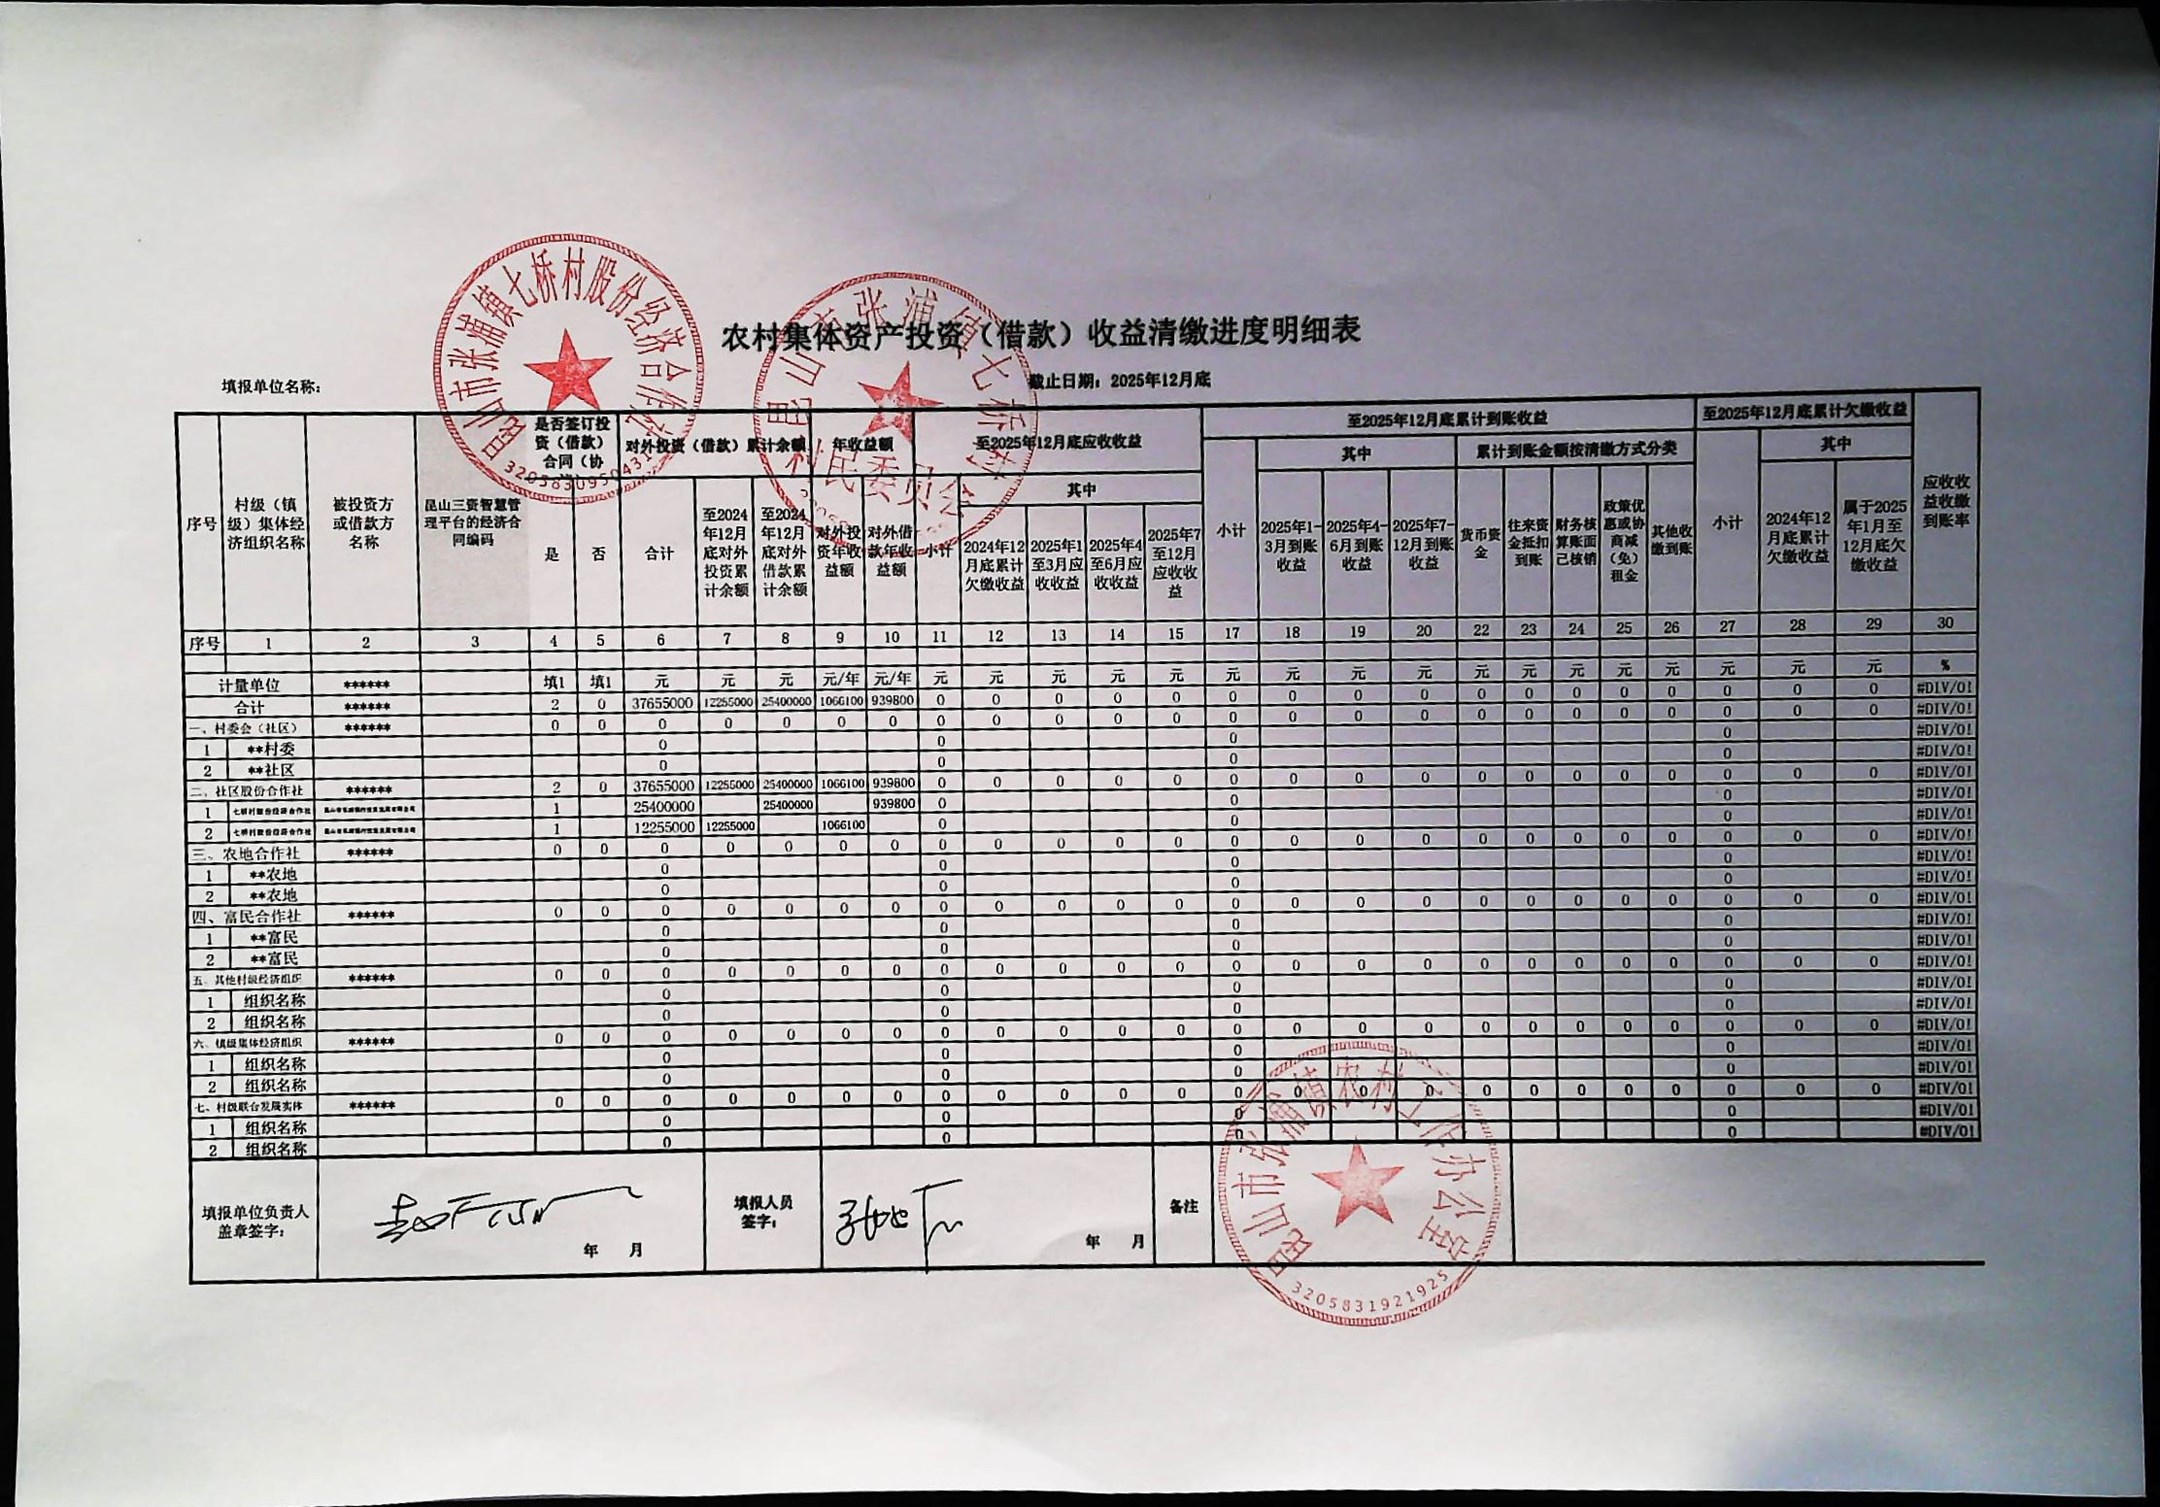 昆山市张浦镇七桥村股份经济合作社
昆山市张浦镇七桥村村民委员会
农村集体资产投资（借款）收益清缴进度明细表
填报单位名称： 截止日期：2025年12月底
序号 村级（镇级）集体经济组织名称 被投资方或借款方名称 昆山三资智慧管理平台的经济合同编码 是否签订投资（借款）合同（协 对外投资（借款）累计余额 年收益额 至2025年12月底应收收益 至2025年12月底累计到账收益 至2025年12月底累计欠缴收益 应收收益收缴到账率
是 否 合计 至2024年12月底对外投资累计余额 至2024年12月底对外借款累计余额 对外投资年收益额 对外借款年收益额 小计 其中 小计 其中 累计到账金额按清缴方式分类 小计 其中
2024年12月底累计欠缴收益 2025年1至3月应收收益 2025年4至6月应收收益 2025年7至12月应收收益 2025年1-3月到账收益 2025年4-6月到账收益 2025年7-12月到账收益 货币资金 往来资金抵扣到账 财务核算账面已核销 政策优惠或协商减（免）租金 其他收缴到账 2024年12月底累计欠缴收益 属于2025年1月至12月底欠缴收益
序号 1 2 3 4 5 6 7 8 9 10 11 12 13 14 15 17 18 19 20 22 23 24 25 26 27 28 29 30
计量单位 ****** 填1 填1 元 元 元 元/年 元/年 元 元 元 元 元 元 元 元 元 元 元 元 元 元 元 元 元 %
合计 ****** 2 0 37655000 12255000 25400000 1066100 939800 0 0 0 0 0 0 0 0 0 0 0 0 0 0 0 0 0 #DIV/0!
一、村委会（社区） ****** 0 0 0 0 0 0 0 0 0 0 0 0 0 0 0 0 0 0 0 0 0 0 0 0 #DIV/0!
1 **村委 0 0 0 0 #DIV/0!
2 **社区 0 0 0 0 #DIV/0!
二、社区股份合作社 ****** 2 0 37655000 12255000 25400000 1066100 939800 0 0 0 0 0 0 0 0 0 0 0 0 0 0 0 0 0 #DIV/0!
1 七桥村股份经济合作社 1 25400000 25400000 939800 0 0 0 #DIV/0!
2 七桥村股份经济合作社 1 12255000 12255000 1066100 0 0 0 #DIV/0!
三、农地合作社 ****** 0 0 0 0 0 0 0 0 0 0 0 0 0 0 0 0 0 0 0 0 0 0 0 0 #DIV/0!
1 **农地 0 0 0 0 #DIV/0!
2 **农地 0 0 0 0 #DIV/0!
四、富民合作社 ****** 0 0 0 0 0 0 0 0 0 0 0 0 0 0 0 0 0 0 0 0 0 0 0 0 #DIV/0!
1 **富民 0 0 0 0 #DIV/0!
2 **富民 0 0 0 0 #DIV/0!
五、其他村级经济组织 ****** 0 0 0 0 0 0 0 0 0 0 0 0 0 0 0 0 0 0 0 0 0 0 0 0 #DIV/0!
1 组织名称 0 0 0 0 #DIV/0!
2 组织名称 0 0 0 0 #DIV/0!
六、镇级集体经济组织 ****** 0 0 0 0 0 0 0 0 0 0 0 0 0 0 0 0 0 0 0 0 0 0 0 0 #DIV/0!
1 组织名称 0 0 0 0 #DIV/0!
2 组织名称 0 0 0 0 #DIV/0!
七、村级联合发展实体 ****** 0 0 0 0 0 0 0 0 0 0 0 0 0 0 0 0 0 0 0 0 0 0 0 0 #DIV/0!
1 组织名称 0 0 0 0 #DIV/0!
2 组织名称 0 0 0 0 #DIV/0!
填报单位负责人盖章签字： 年 月 填报人员签字： 年 月 备注
昆山市张浦镇农村工作办公室
3205831921925